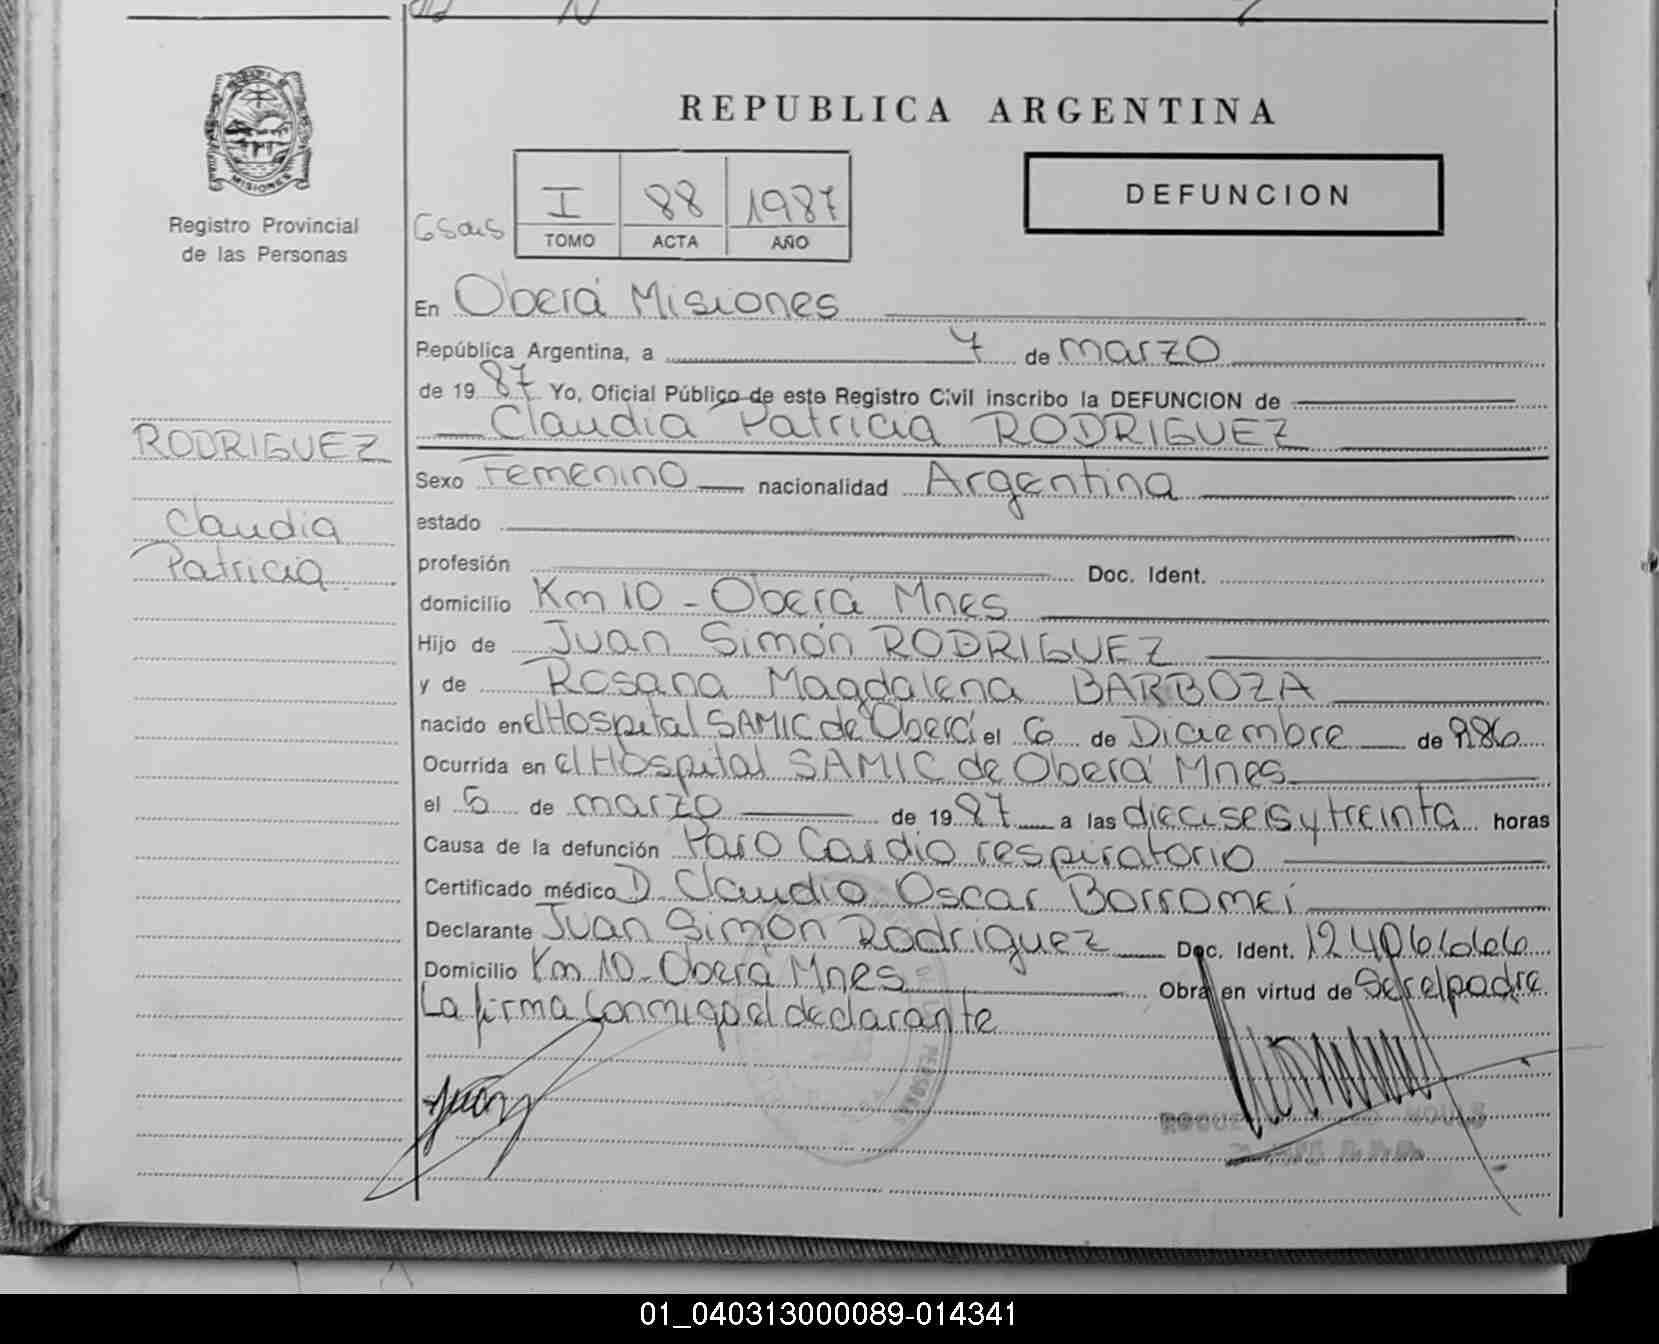 REPUBLICA ARGENTINA
MISIONES
Registro Provincial
de las Personas
I 88 1987
TOMO ACTA AÑO
DEFUNCION
En Oberá Misiones
República Argentina, a 7 de marzo
de 19 87 Yo, Oficial Público de este Registro Civil inscribo la DEFUNCION de
Claudia Patricia RODRIGUEZ
RODRIGUEZ
Claudia
Patricia
Sexo Femenino nacionalidad Argentina
estado
profesión Doc. Ident.
domicilio Km 10 - Oberá Mnes
Hijo de Juan Simón RODRIGUEZ
y de Rosana Magdalena BARBOZA
nacido en el Hospital SAMIC de Oberá el 6 de Diciembre de 986
Ocurrida en el Hospital SAMIC de Oberá Mnes
el 6 de marzo de 19 87 a las dieciseis y treinta horas
Causa de la defunción Paro Cardio respiratorio
Certificado médico D. Claudio Oscar Borromei
Declarante Juan Simón Rodriguez Doc. Ident. 12.406.666
Domicilio Km 10 - Oberá Mnes Obra en virtud de Ser el padre
La firma conmigo el declarante
PERSONAS
01_040313000089-014341